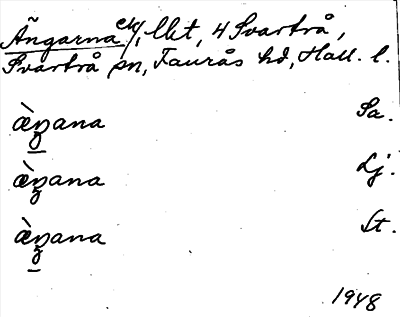 Ängarna, 4 Svartrå,
Svartrå sn, Faurås hd, Hall. l.
æ̀ŋana Sa.
æ̀ŋana Lj.
æ̀ŋana St.
1948